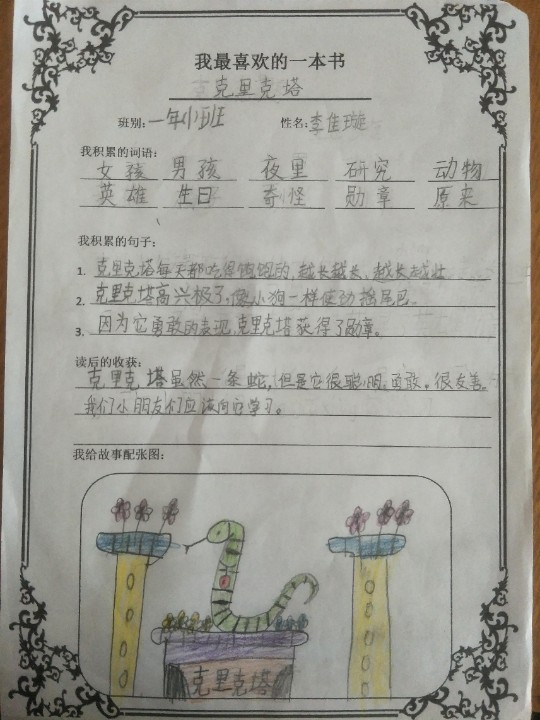 我最喜欢的一本书
克里克塔
班别:一年小班 性名:李佳璇
我积累的词语:
女孩 男孩 夜里 研究 动物
英雄 生日 奇怪 勋章 原来
我积累的句子:
1. 克里克塔每天都吃得饱饱的,越长越长、越长越壮
2. 克里克塔高兴极了,像小狗一样使劲摇尾巴。
3. 因为它勇敢的表现,克里克塔获得了勋章。
读后的收获:
克里克塔虽然一条蛇,但是它很聪明,勇敢。很友善。
我们小朋友们应该向它学习。
我给故事配张图:
克里克塔